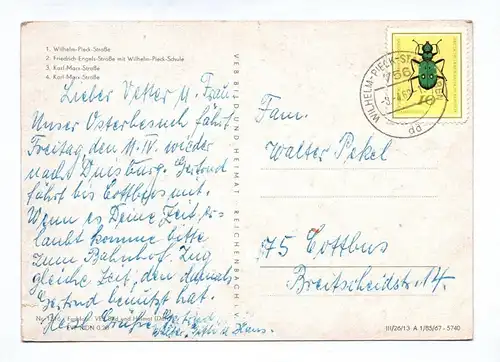 1. Wilhelm-Pieck-Straße
2. Friedrich-Engels-Straße mit Wilhelm-Pieck-Schule
3. Karl-Marx-Straße
4. Karl-Marx-Straße
Lieber Vetter u. Frau!
Unser Osterbesuch fährt
Freitag den 11. IV. wieder
nach Duisburg. Gertrud
fährt bis Cottbus mit.
Wenn es Deine Zeit er-
laubt komme bitte
zum Bahnhof. Zug
gleiche Zeit, den damals
Gertrud benutzt hat.
Herzl. Grüße Gertrud
Hans.
VEB BILD UND HEIMAT REICHENBACH I. V.
WILHELM-PIECK-ST
756
10
Fam.
Walter Pekel
75 Cottbus
Breitscheidstr. 14.
III/26/13 A 1/85/67 - 5740